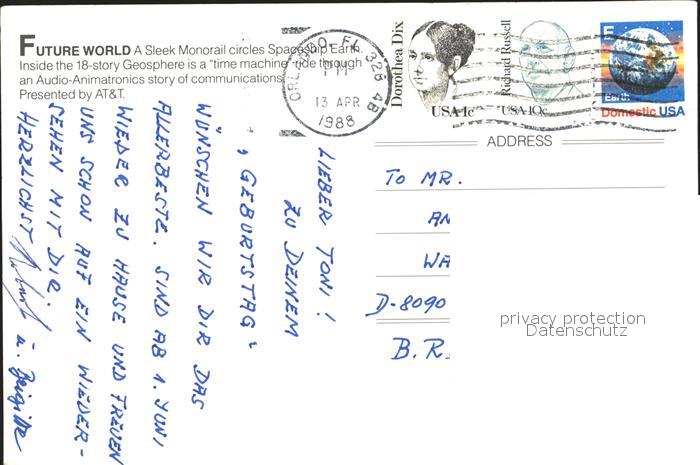 FUTURE WORLD A Sleek Monorail circles Spaceship Earth.
Inside the 18-story Geosphere is a "time machine" ride through
an Audio-Animatronics story of communications.
Presented by AT&T.
ORLANDO, FL 328 4B
PM
13 APR
1988
Dorothea Dix
USA 1c
Richard Russell
USA 10c
E
Earth
Domestic USA
ADDRESS
TO MR.
AN
WA
D-8090
B.R.
privacy protection
Datenschutz
LIEBER TONI!
ZU DEINEM
„GEBURTSTAG"
WÜNSCHEN WIR DIR DAS
ALLERBESTE. SIND AB 1. JUNI
WIEDER ZU HAUSE UND FREUEN
UNS SCHON AUF EIN WIEDER-
SEHEN MIT DIR.
HERZLICHST
u. Brigitte